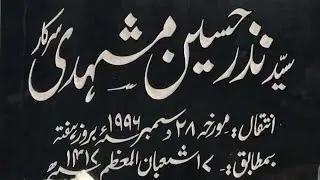 سید نذر حسین مشہدی سرکار
انتقال:۔ مورخہ ۲۸ دسمبر ۱۹۹۶ء بروز ہفتہ
بمطابق:۔ ۱۷ شعبان المعظم ۱۴۱۷ھ